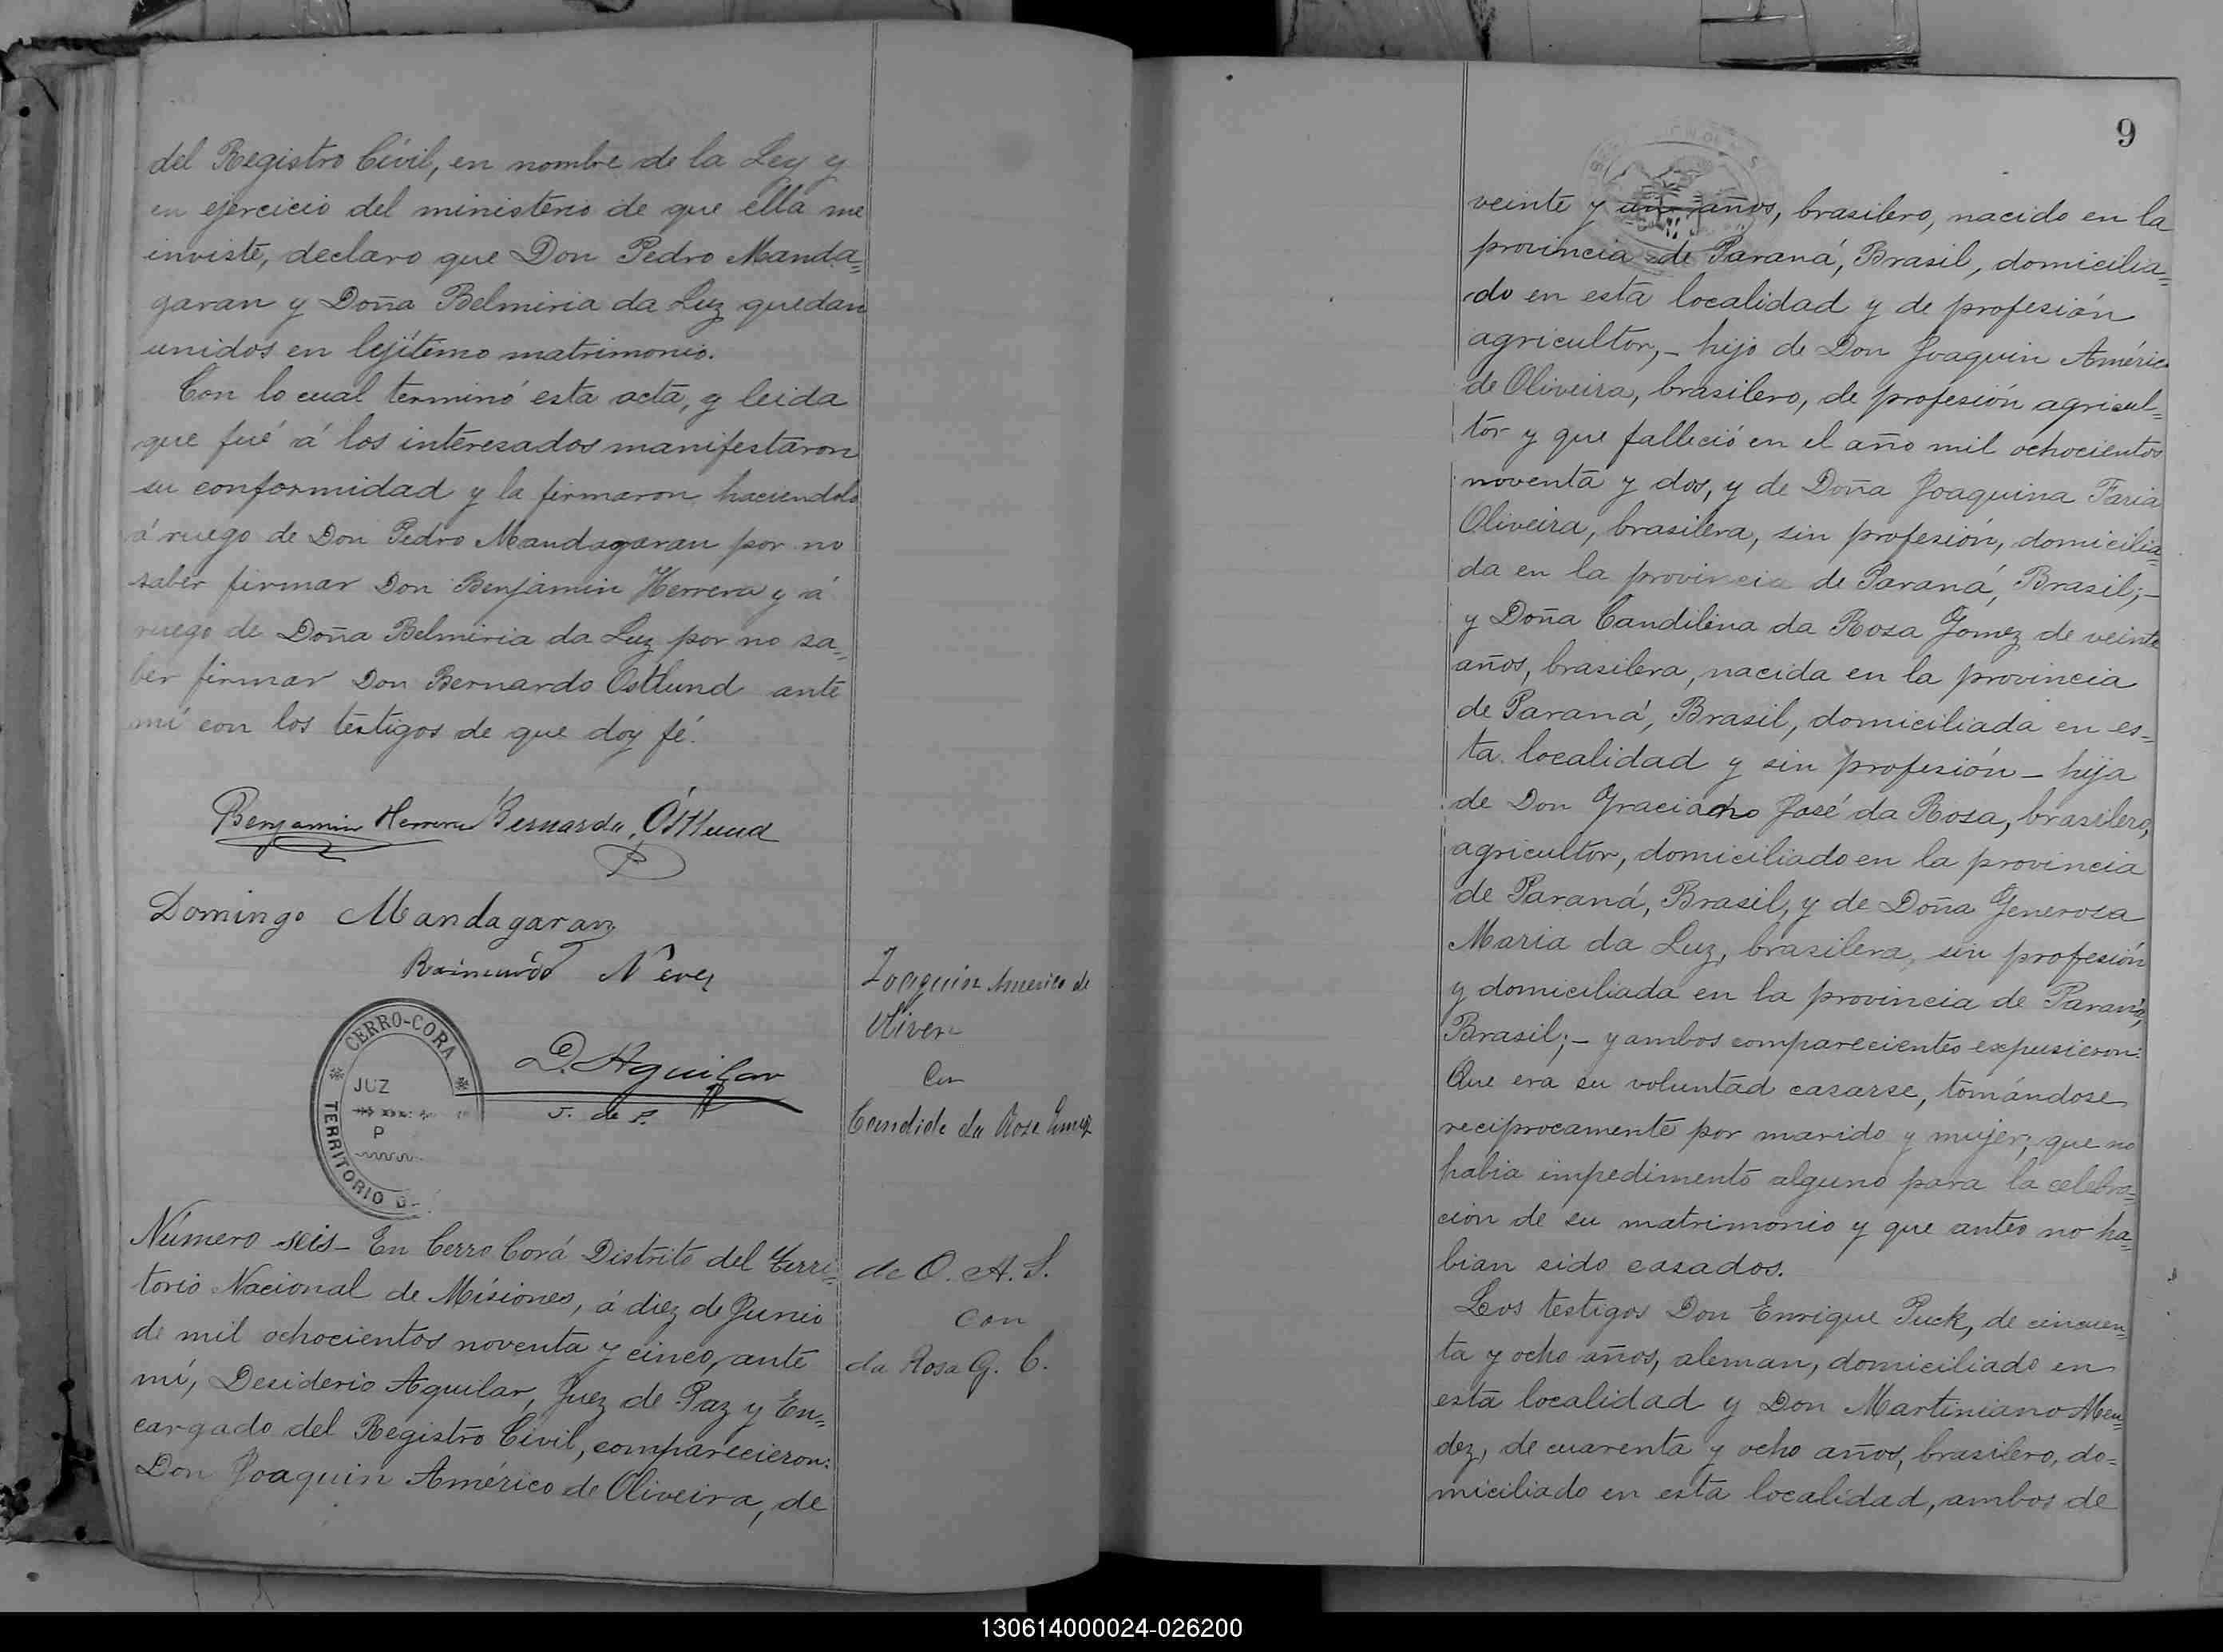 del Registro Civil, en nombre de la Ley y
en ejercicio del ministerio de que ella me
inviste, declaro que Don Pedro Manda=
garan y Doña Belmiria da Luz quedan
unidos en lejítimo matrimonio.
Con lo cual terminó esta acta, y leida
que fué á los interesados manifestaron
su conformidad y la firmaron haciendolo
á ruego de Don Pedro Mandagaran por no
saber firmar Don Benjamin Herrera y á
ruego de Doña Belmiria da Luz por no sa=
ber firmar Don Bernardo Ostlund ante
mí con los testigos de que doy fé.
Benjamin Herrera Bernardo Östlund
Domingo Mandagaran
Raimundo Neves
CERRO-CORA
JUZ
P
TERRITORIO D
D. Aguilar
J. de P.
Joaquin Americo de
Oliver
Con
Candida da Rosa Gomez
Número seis- En Cerro Corá Distrito del Terri=
torio Nacional de Misiones, á diez de Junio
de mil ochocientos noventa y cinco, ante
mí, Desiderio Aguilar, Juez de Paz y En=
cargado del Registro Civil, comparecieron:
Don Joaquin Américo de Oliveira, de
de O. A. J.
con
da Rosa G. C.
9
veinte y un años, brasilero, nacido en la
provincia de Paraná, Brasil, domicilia=
do en esta localidad y de profesión
agricultor,- hijo de Don Joaquin Américo
de Oliveira, brasilero, de profesión agricul=
tor y que falleció en el año mil ochocientos
noventa y dos, y de Doña Joaquina Faria
Oliveira, brasilera, sin profesión, domicilia=
da en la provincia de Paraná, Brasil;-
y Doña Candilina da Rosa Gomez de veinte
años, brasilera, nacida en la provincia
de Paraná, Brasil, domiciliada en es=
ta localidad y sin profesión - hija
de Don Graciano José da Rosa, brasilero,
agricultor, domiciliado en la provincia
de Paraná, Brasil, y de Doña Generosa
Maria da Luz, brasilera, sin profesión
y domiciliada en la provincia de Paraná,
Brasil;- y ambos comparecientes expusieron:
Que era su voluntad casarse, tomándose
reciprocamente por marido y mujer; que no
habia impedimento alguno para la celebra=
ción de su matrimonio y que antes no ha=
bian sido casados.
Los testigos Don Enrique Puck, de cincuen=
ta y ocho años, aleman, domiciliado en
esta localidad y Don Martiniano Men=
dez, de cuarenta y ocho años, brasilero, do=
miciliado en esta localidad, ambos de
130614000024-026200